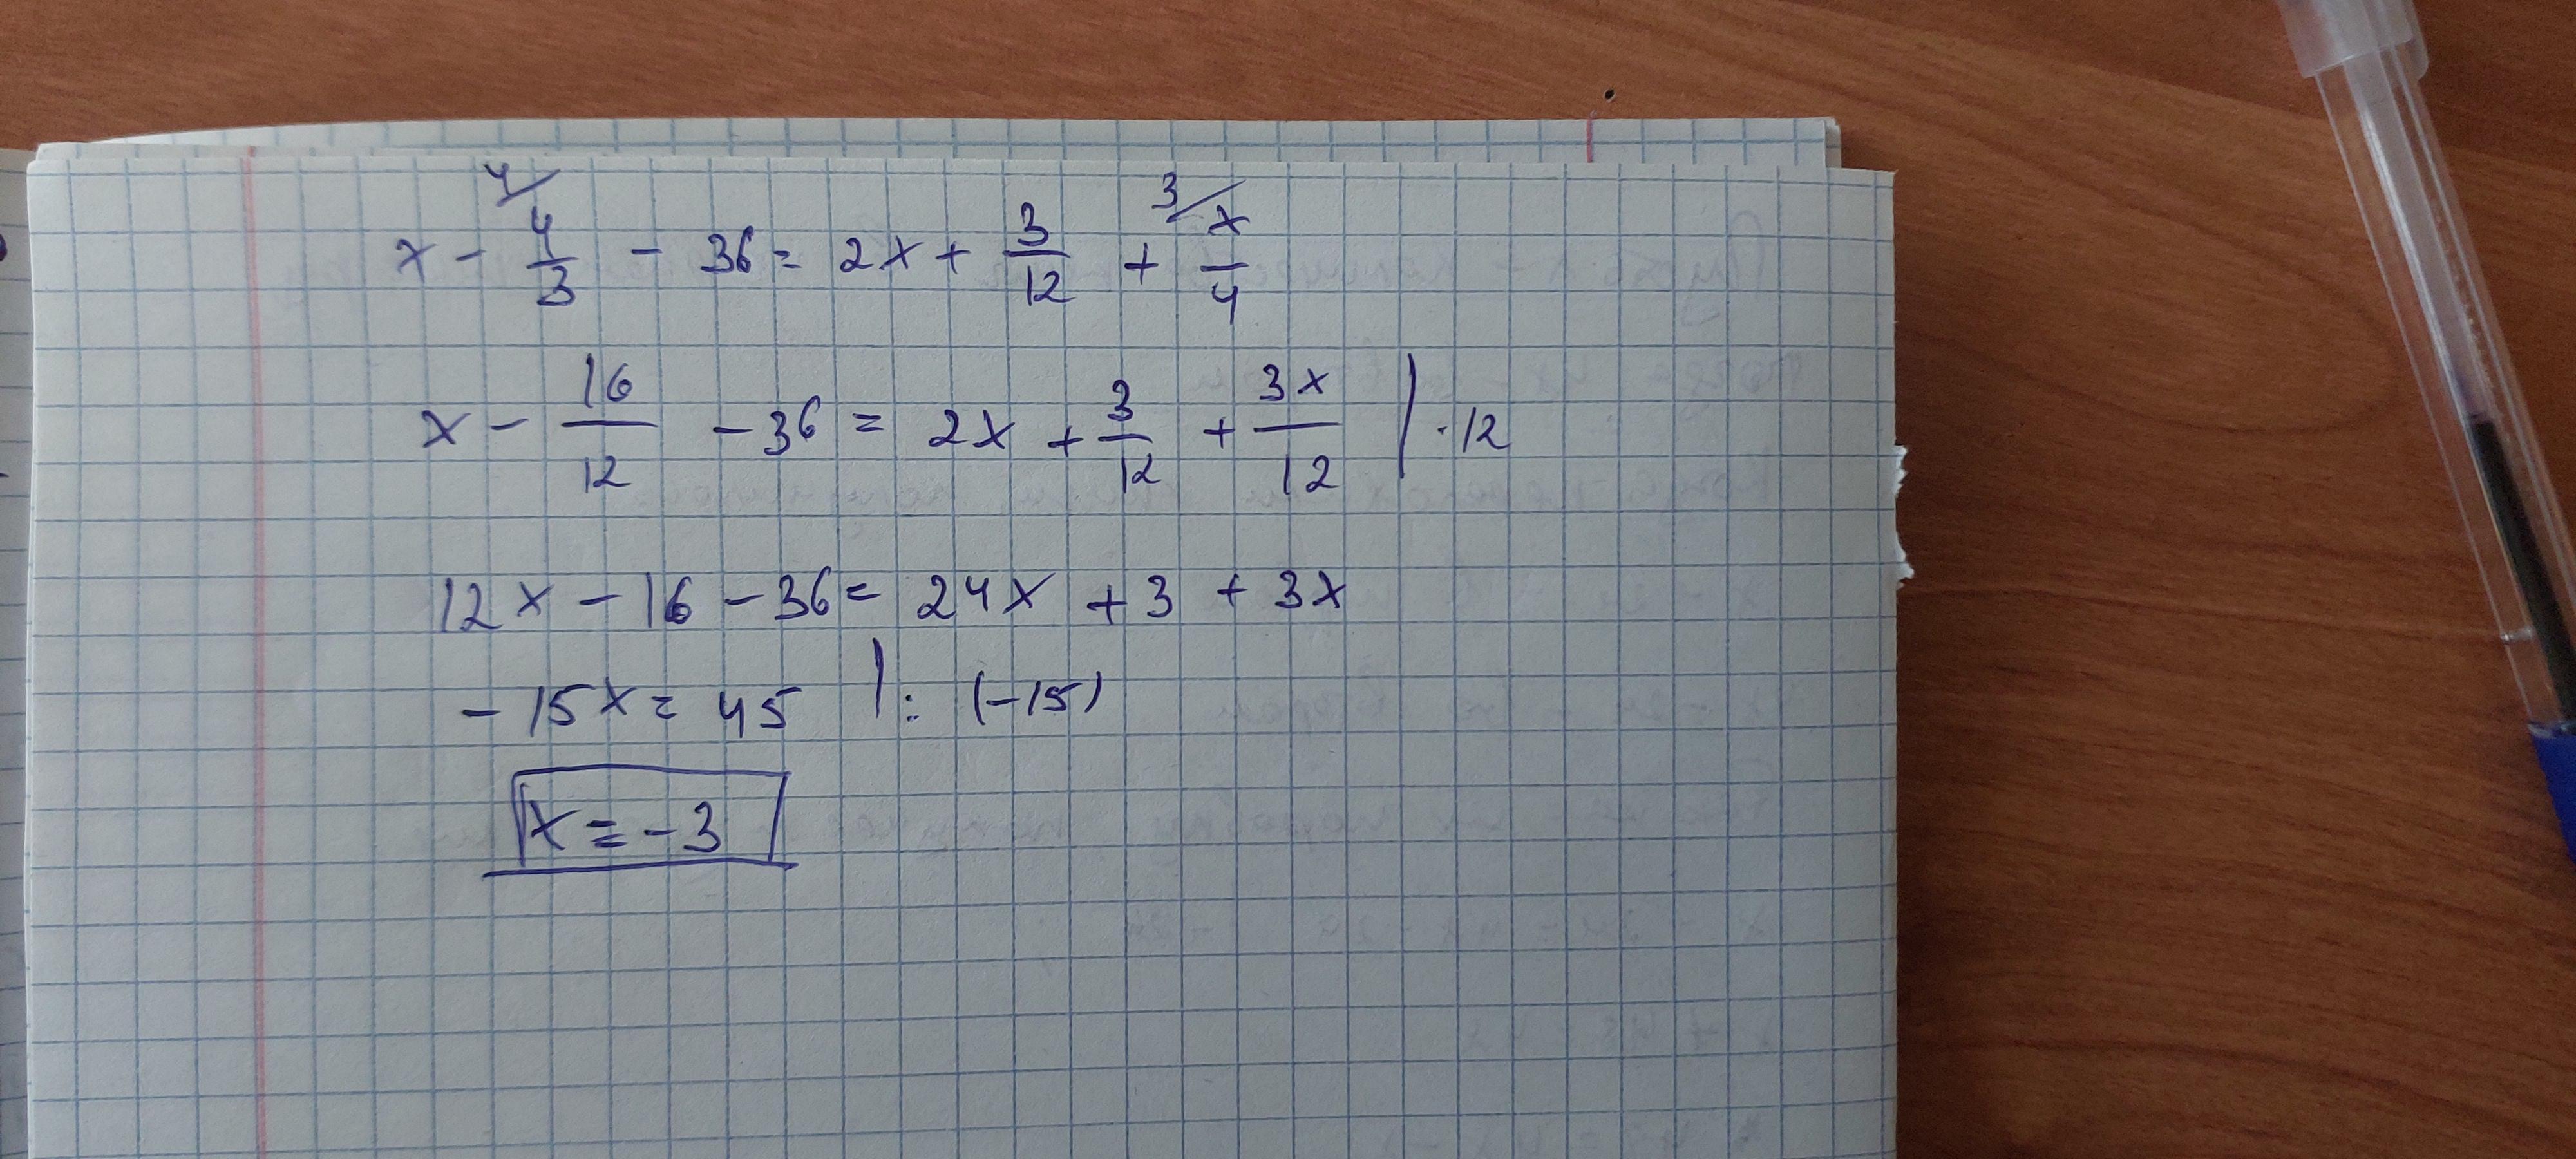 x - 4/ 4/3 - 36 = 2x + 3/12 + 3/ x/4
x - 16/12 - 36 = 2x + 3/12 + 3x/12 | · 12
12x - 16 - 36 = 24x + 3 + 3x
- 15x = 45 | : (-15)
x = - 3